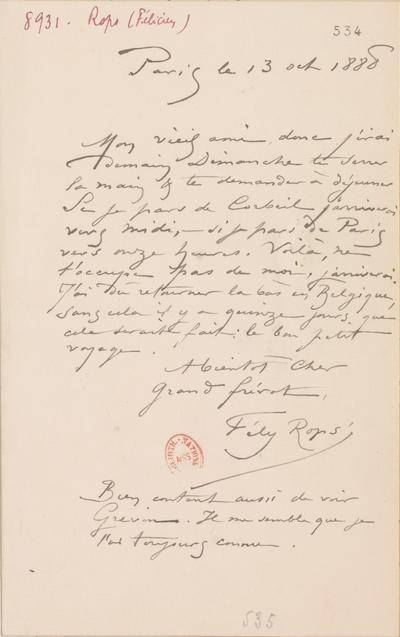 8931. Rops (Félicien)
534
Paris le 13 oct 1888
Mon vieil ami, donc j'irai
demain Dimanche te serrer
la main & te demander à déjeuner
Si je pars de Corbeil j'arriverai
vers midi, – si je pars de Paris
vers onze heures. Voilà, ne
t'occupe pas de moi, j'arriverai.
J'ai dû retourner là bas en Belgique,
sans cela il y a quinze jours que
cela serait fait: le bon petit
voyage.
A bientôt cher
Grand frérot,
Fély Rops
Bien content aussi de voir
Grévin. Il me semble que je
l'ai toujours connu.
535